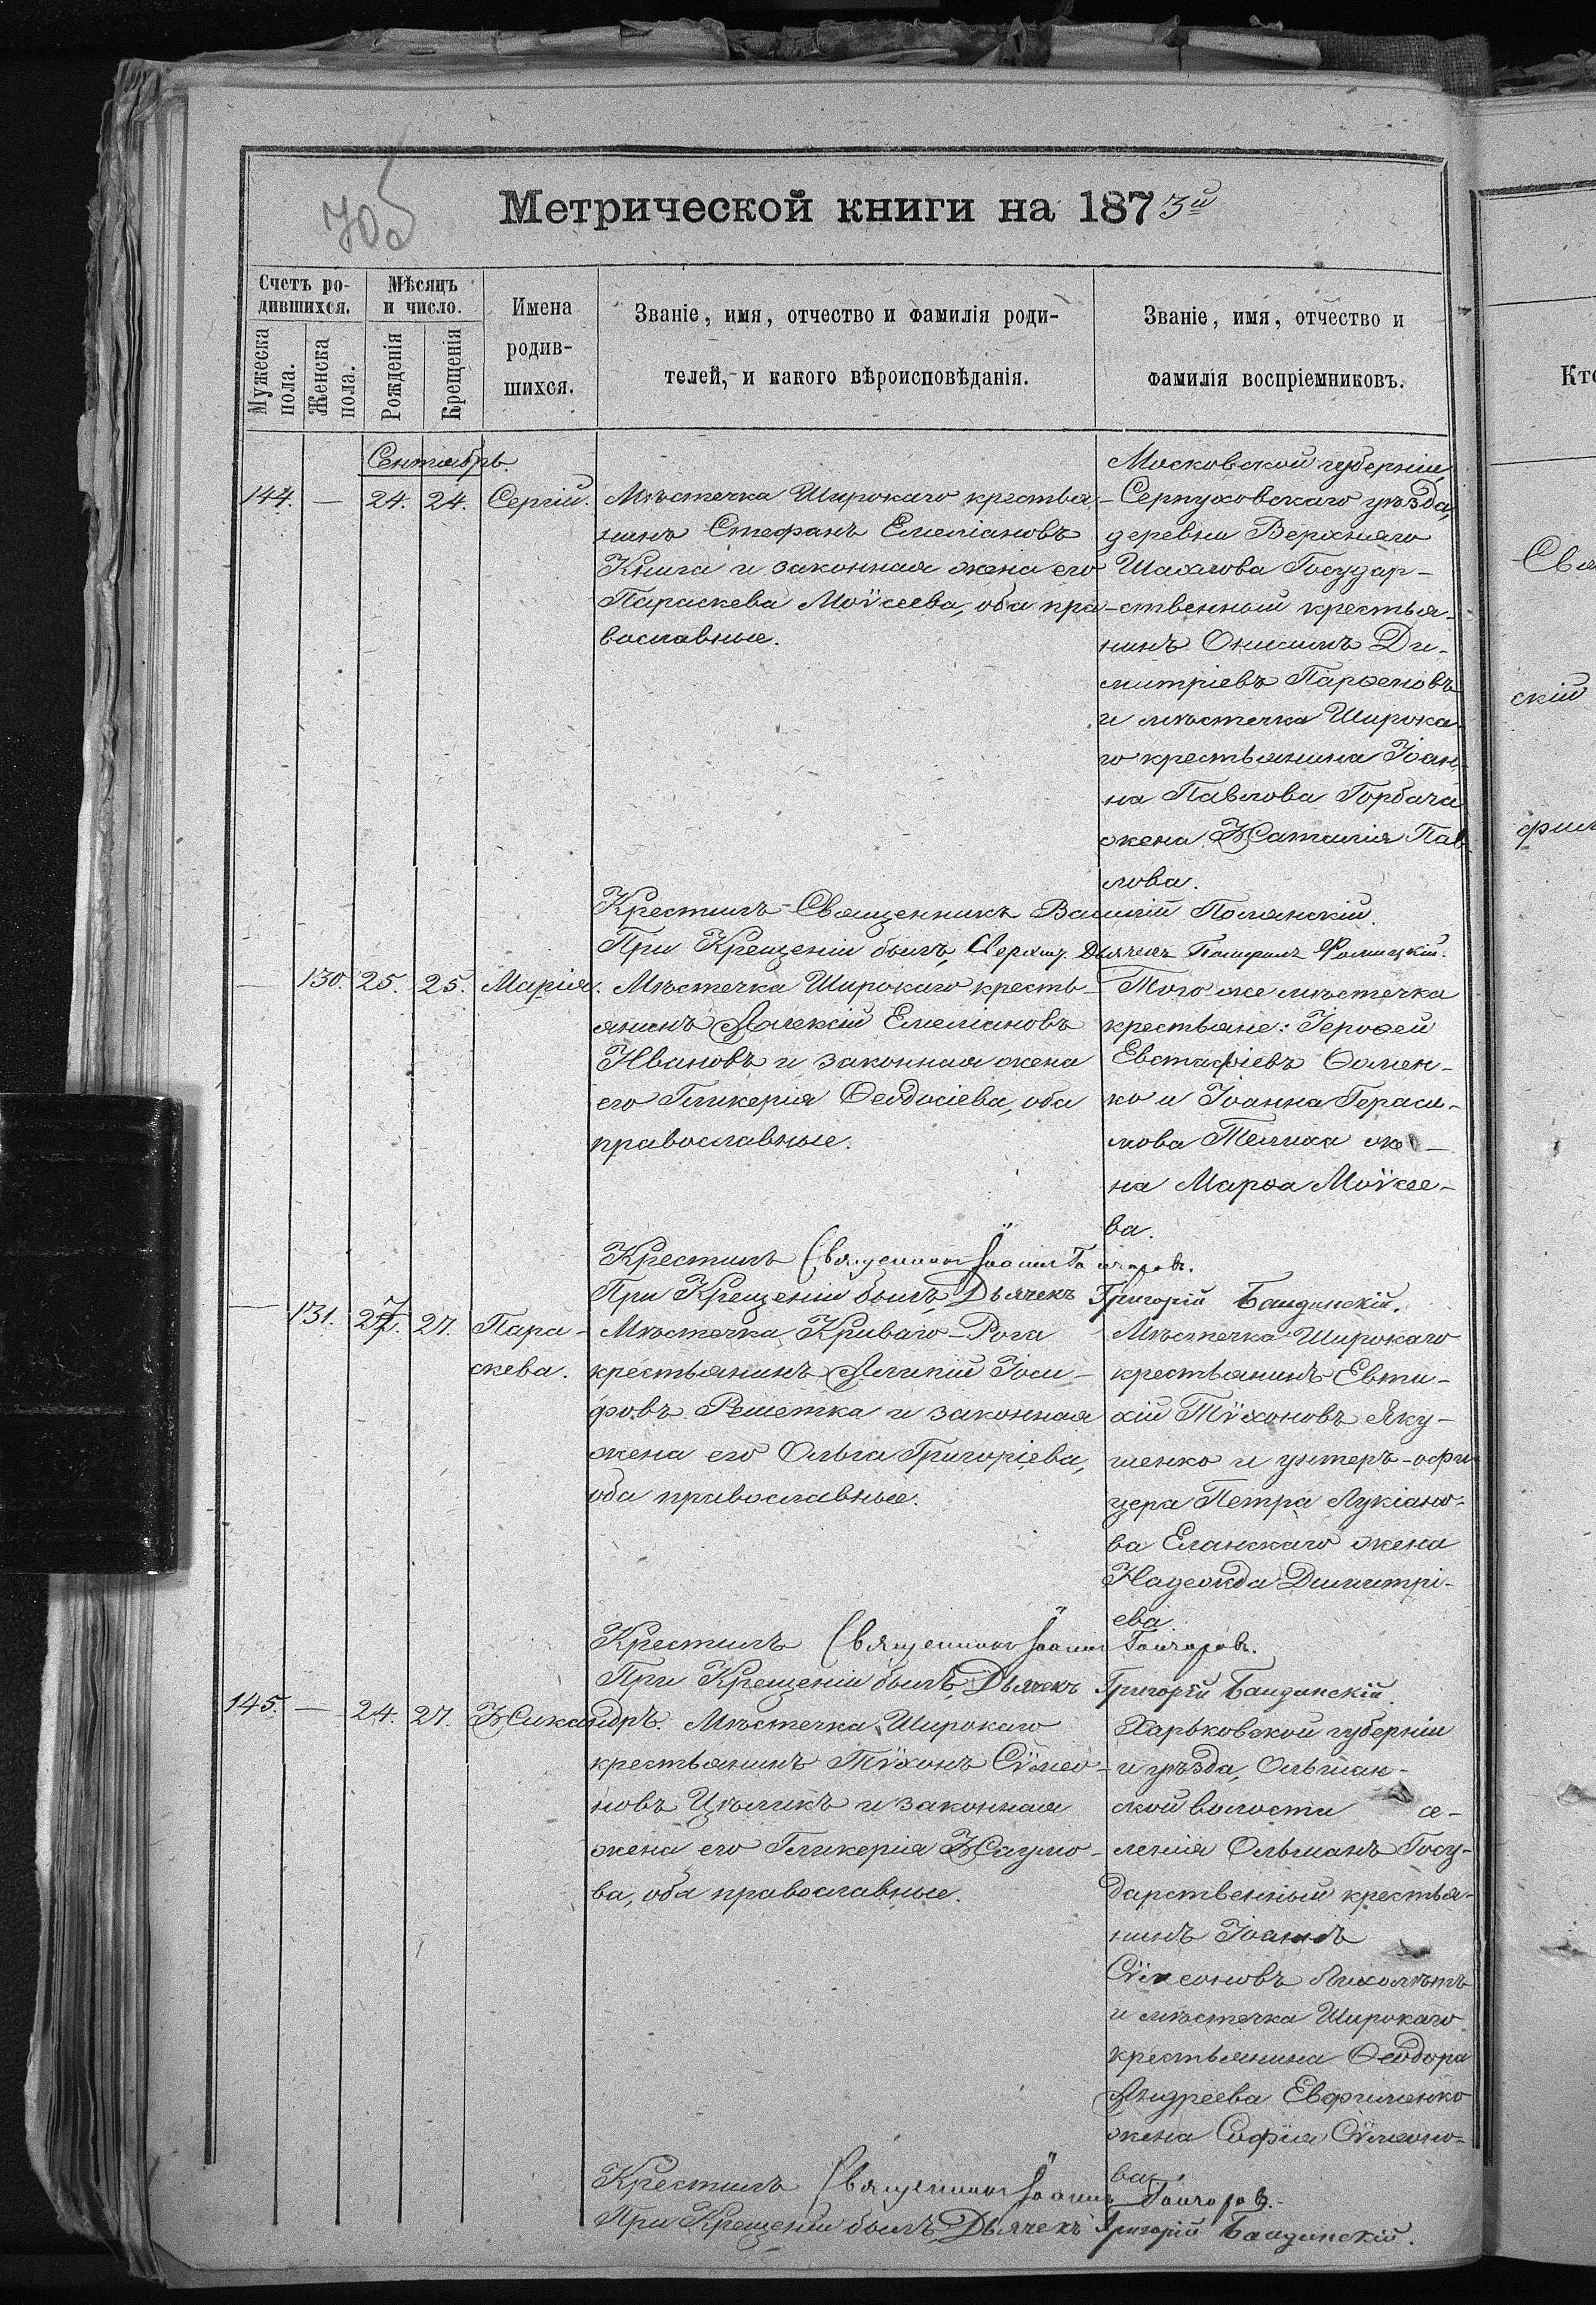 705
Метрической книги на 1873й
Счетъ ро-
дившихся.
Мужеска пола.
Женска пола.
Мѣсяцъ
и число.
Рожденія
Крещенія
Имена
родив-
шихся.
Званіе, имя, отчество и фамилія роди-
телей, и какого вѣроисповѣданія.
Званіе, имя, отчество и
фамилія воспріемниковъ.
Сентябрь.
144. — 24. 24. Сергій.
Мѣстечка Широкаго крестья-
нинъ Стефанъ Емеліановъ
Книга и законная жена его
Параскева Моѵсеева, оба пра-
вославные.
Московской губерніи,
Серпуховскаго уѣзда,
деревни Верхняго
Шахлова Государ-
ственный крестья-
нинъ Онисимъ Ди-
митріевъ Парѳеновъ
и мѣстечка Широка-
го крестьянина Іоан-
на Павлова Горбача
жена Наталія Пав-
лова.
Крестилъ Священникъ Василій Полянскій.
При Крещеніи былъ, Дьячекъ
— 130. 25. 25. Марія.
Мѣстечка Широкаго кресть-
янинъ Алексій Емеліановъ
Ивановъ и законная жена
его Гликерія Ѳеодосіева, оба
православные.
Того же мѣстечка
крестьяне: Іероѳей
Евстафіевъ Ѳомен-
ко и Іоанна Гераси-
мова Телиха же-
на Марѳа Моѵсее-
ва.
Крестилъ Священникъ Іоаннъ Гончаровъ.
При Крещеніи былъ, Дьячекъ Григорій Бандинскій.
— 131. 27. 27. Пара-
скева.
Мѣстечка Криваго-Рога
крестьянинъ Алипій Іоси-
фовъ Решетка и законная
жена его Ольга Григоріева,
оба православные.
Мѣстечка Широкаго
крестьянинъ Евти-
хій Тѵхоновъ Яку-
шенко и унтеръ-офи-
цера Петра Лукіано-
ва Еланскаго жена
Надежда Димитрі-
ева.
Крестилъ Священникъ Іоаннъ Гончаровъ.
При Крещеніи былъ, Дьячекъ Григорій Бандинскій.
145. — 24. 27. Никандръ.
Мѣстечка Широкаго
крестьянинъ Тѵхонъ Сѵмео-
новъ Цѣликъ и законная
жена его Гликерія Наумо-
ва, оба православные.
Харьковской губерніи
и уѣзда, Ольшан-
ской волости се-
ленія Ольшанъ Госу-
дарственный крестья-
нинъ Іоаннъ
Сѵмеоновъ Лихолѣтъ
и мѣстечка Широкаго
крестьянина Ѳеодора
Андреева Евфименко
жена Софія Сѵмеоно-
ва.
Крестилъ Священникъ Іоаннъ Гончаровъ.
При Крещеніи былъ, Дьячекъ Григорій Бандинскій.
Кто
скій